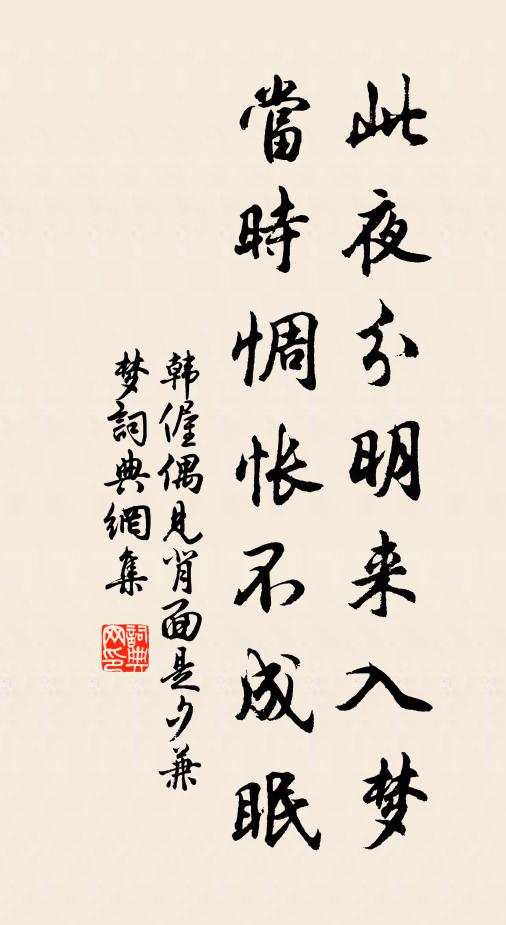 此夜分明来入梦
當時惆怅不成眠
韩偓偶見背面是夕兼
梦詞典網集
詞典网印